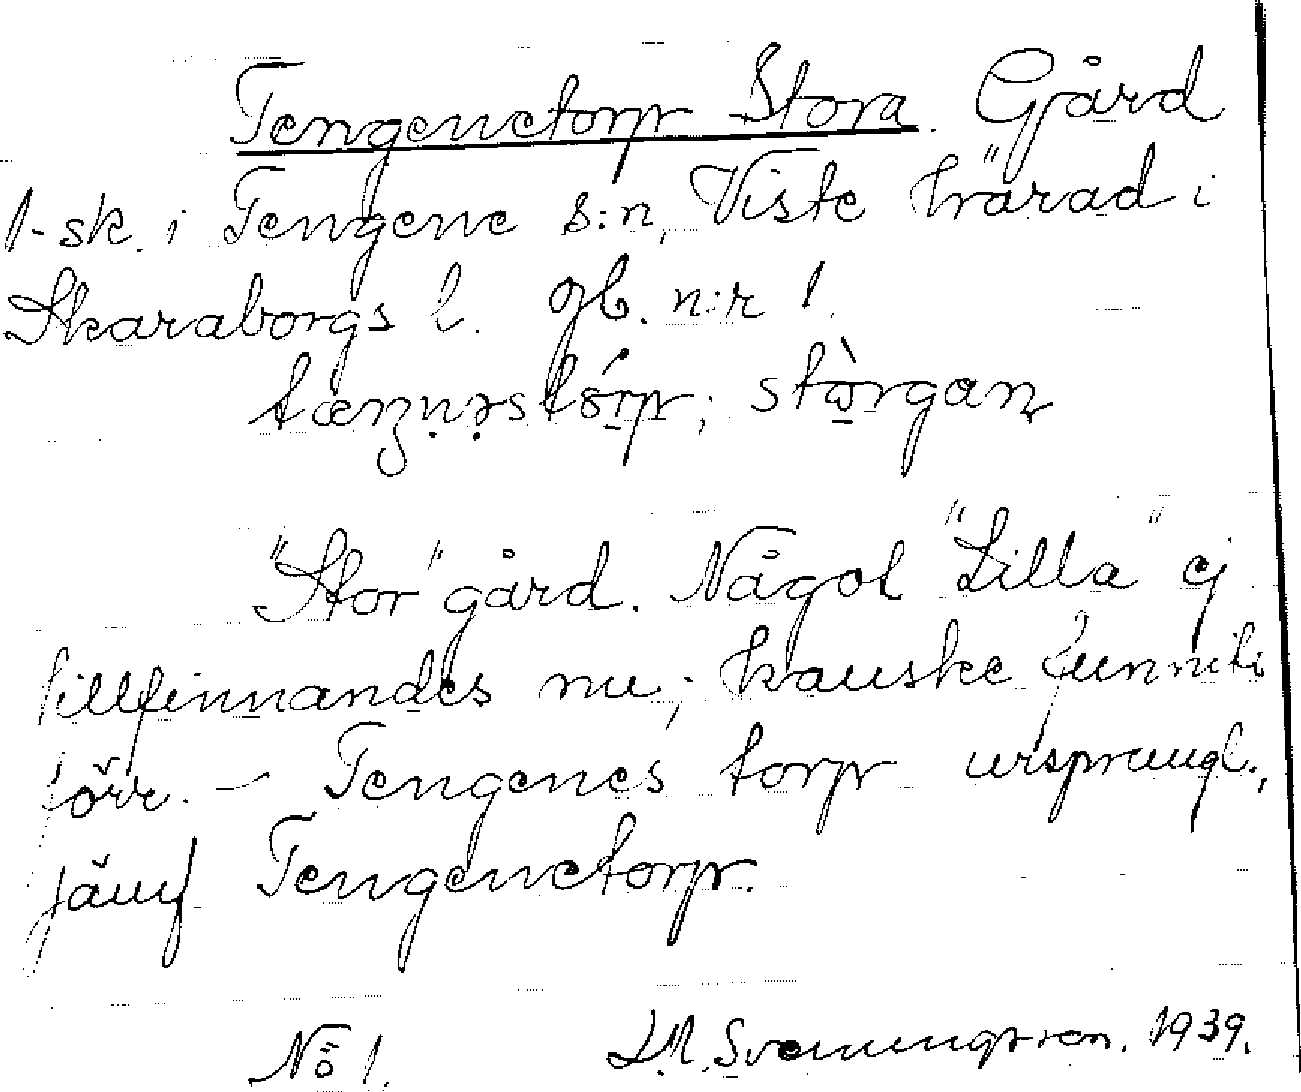 Tengenetorp Stora. Gård
1-sk. i Tengene s:n, Viste härad i
Skaraborgs l. gb. n:r 1.
stòrgan
"Stor" gård. Något "Lilla" ej
tillfinnandes nu; kanske funnits
förr. - Tengenes torp urspungl.,
jämf Tengenetorp.
No 1. Svenungsson. 1939.